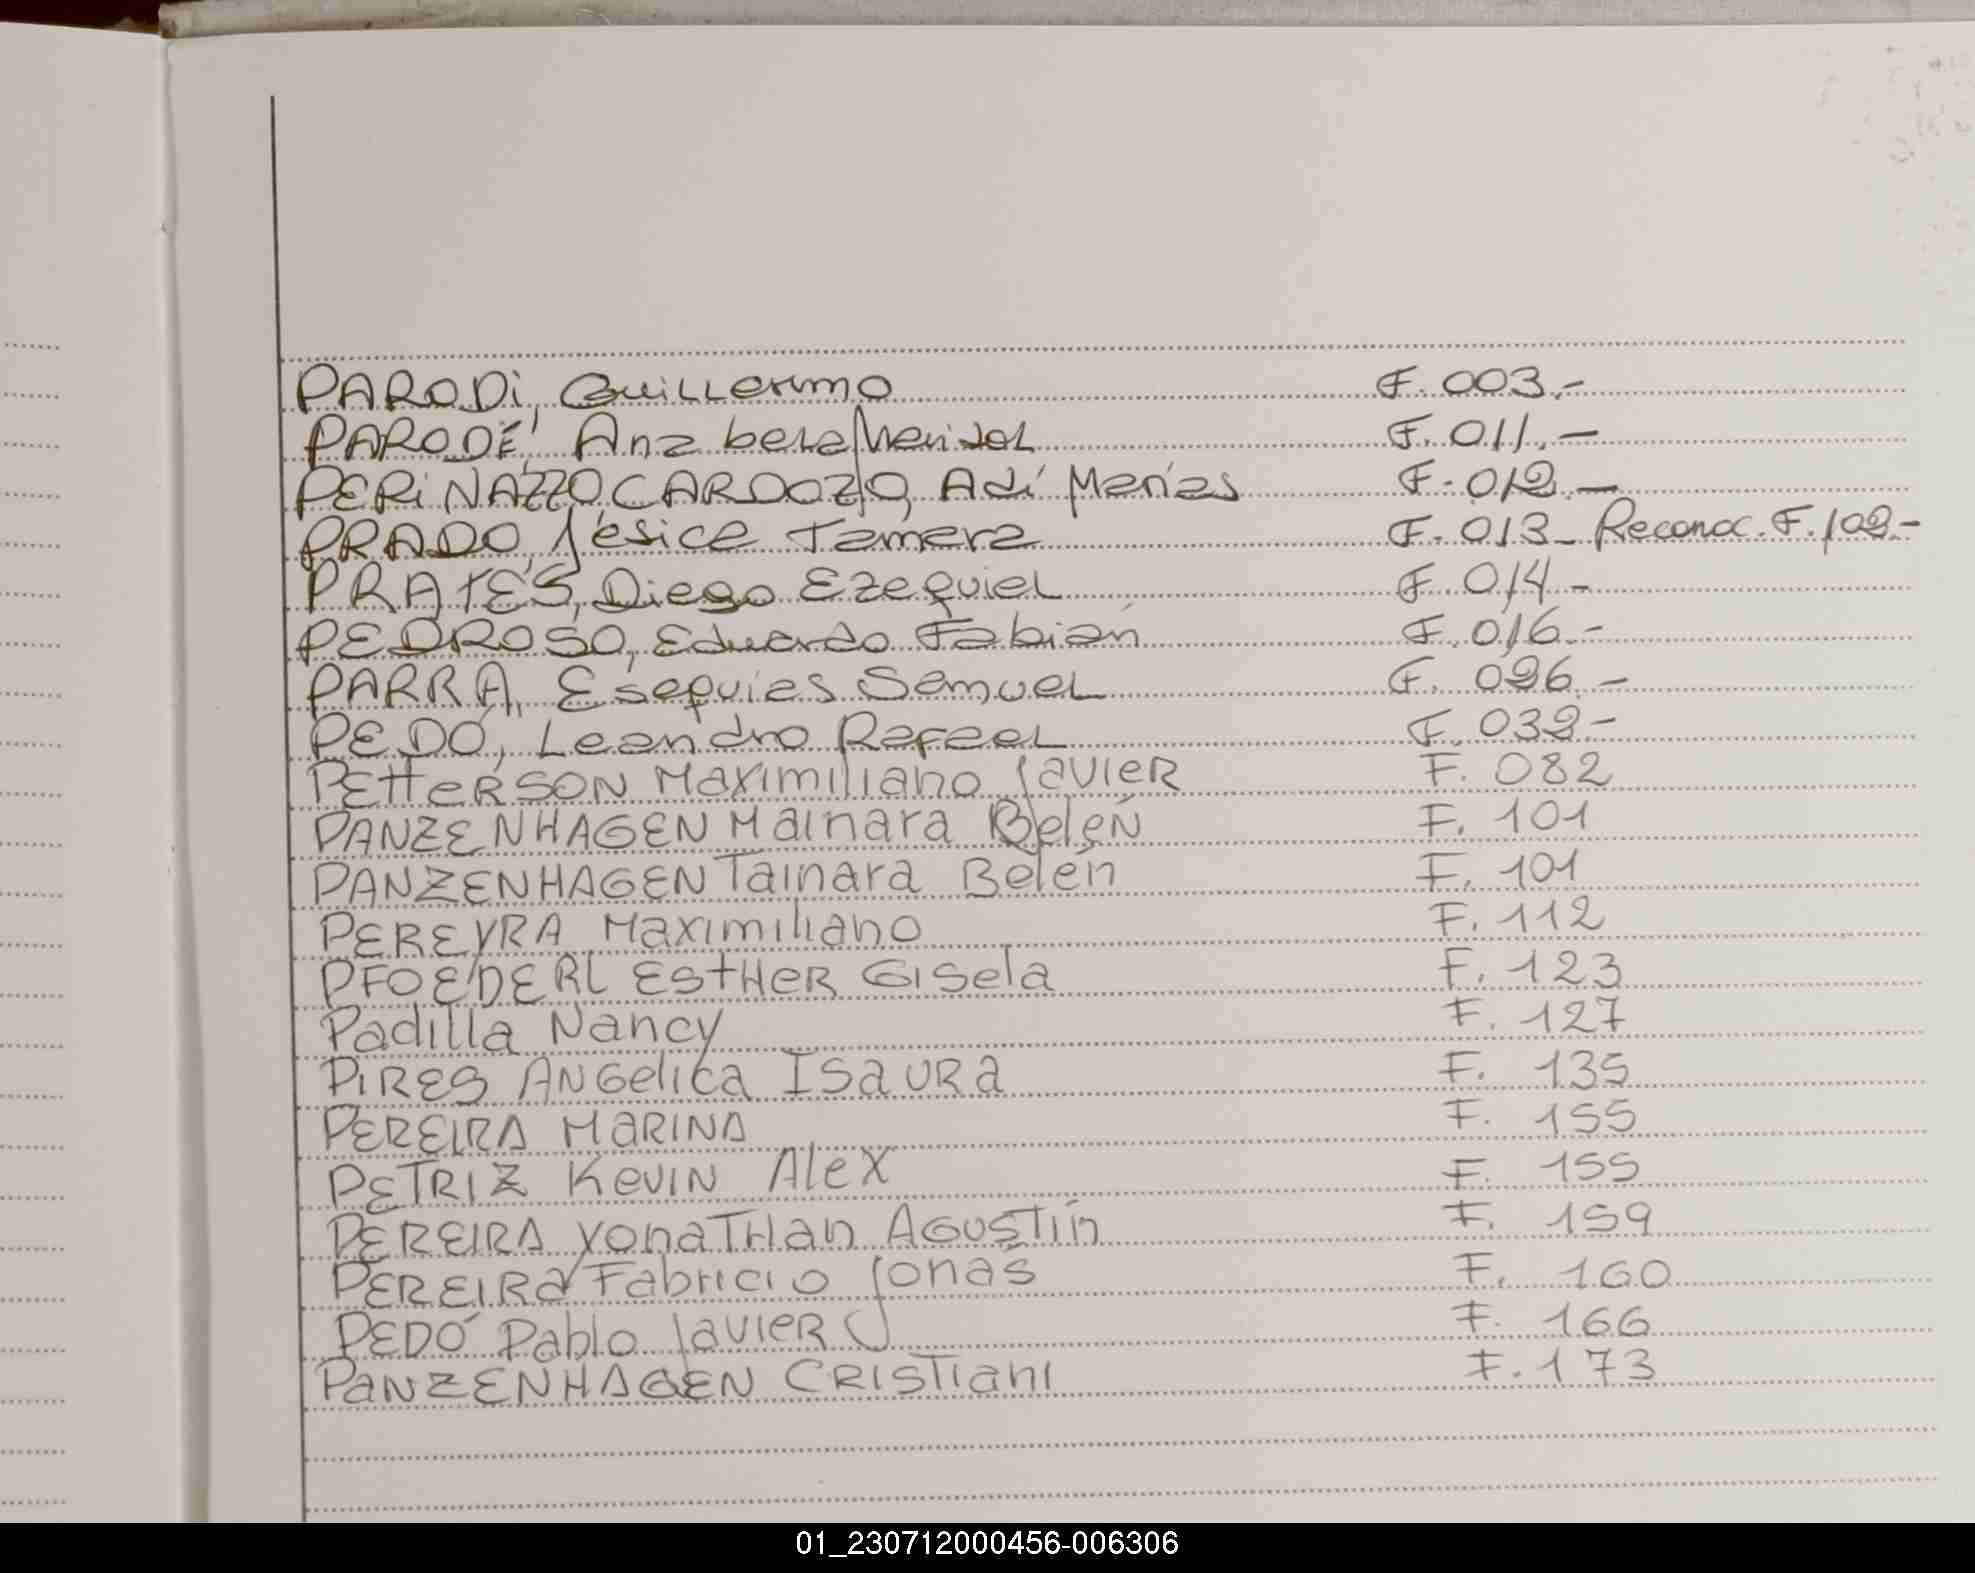 PARODi, Guillermo F. 003.-
PARODÉ, Anabela Marisol F. 011.-
PERiNAZZO CARDOZO, Adi Marías F. 012.-
PRADO, Jésica Tamara F. 013- Reconoc. F. 102.-
PRATES, Diego Ezequiel F. 014-
PEDROSO, Eduardo Fabián F. 016.-
PARRA, Esequias Samuel F. 026.-
PEDÓ, Leandro Rafael F. 032-
PETTERSON Maximiliano Javier F. 082
PANZENHAGEN Mainara Belén F. 101
PANZENHAGEN Tainara Belén F. 101
PEREYRA Maximiliano F. 112
PFOEDERL EstHER Gisela F. 123
Padilla Nancy F. 127
PIRES ANGelica Isaura F. 135
PEREIRA MARINA F. 155
PETRIZ KEVIN AleX F. 155
PEREIRA YonaTHan AGUSTín F. 159
PEREIRa Fabricio Jonas F. 160
PEDÓ Pablo Javier F. 166
PANZENHAGEN CRISTiani F. 173
01_230712000456-006306